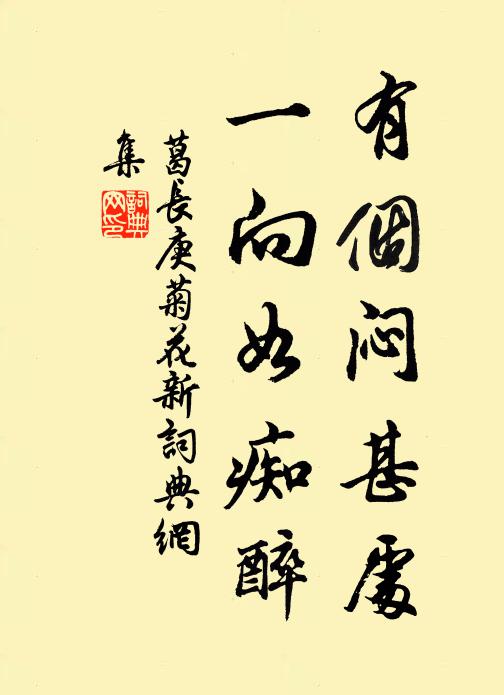 有個悶甚處
一向如痴醉
葛長庚菊花新詞典網
集
詞典網印